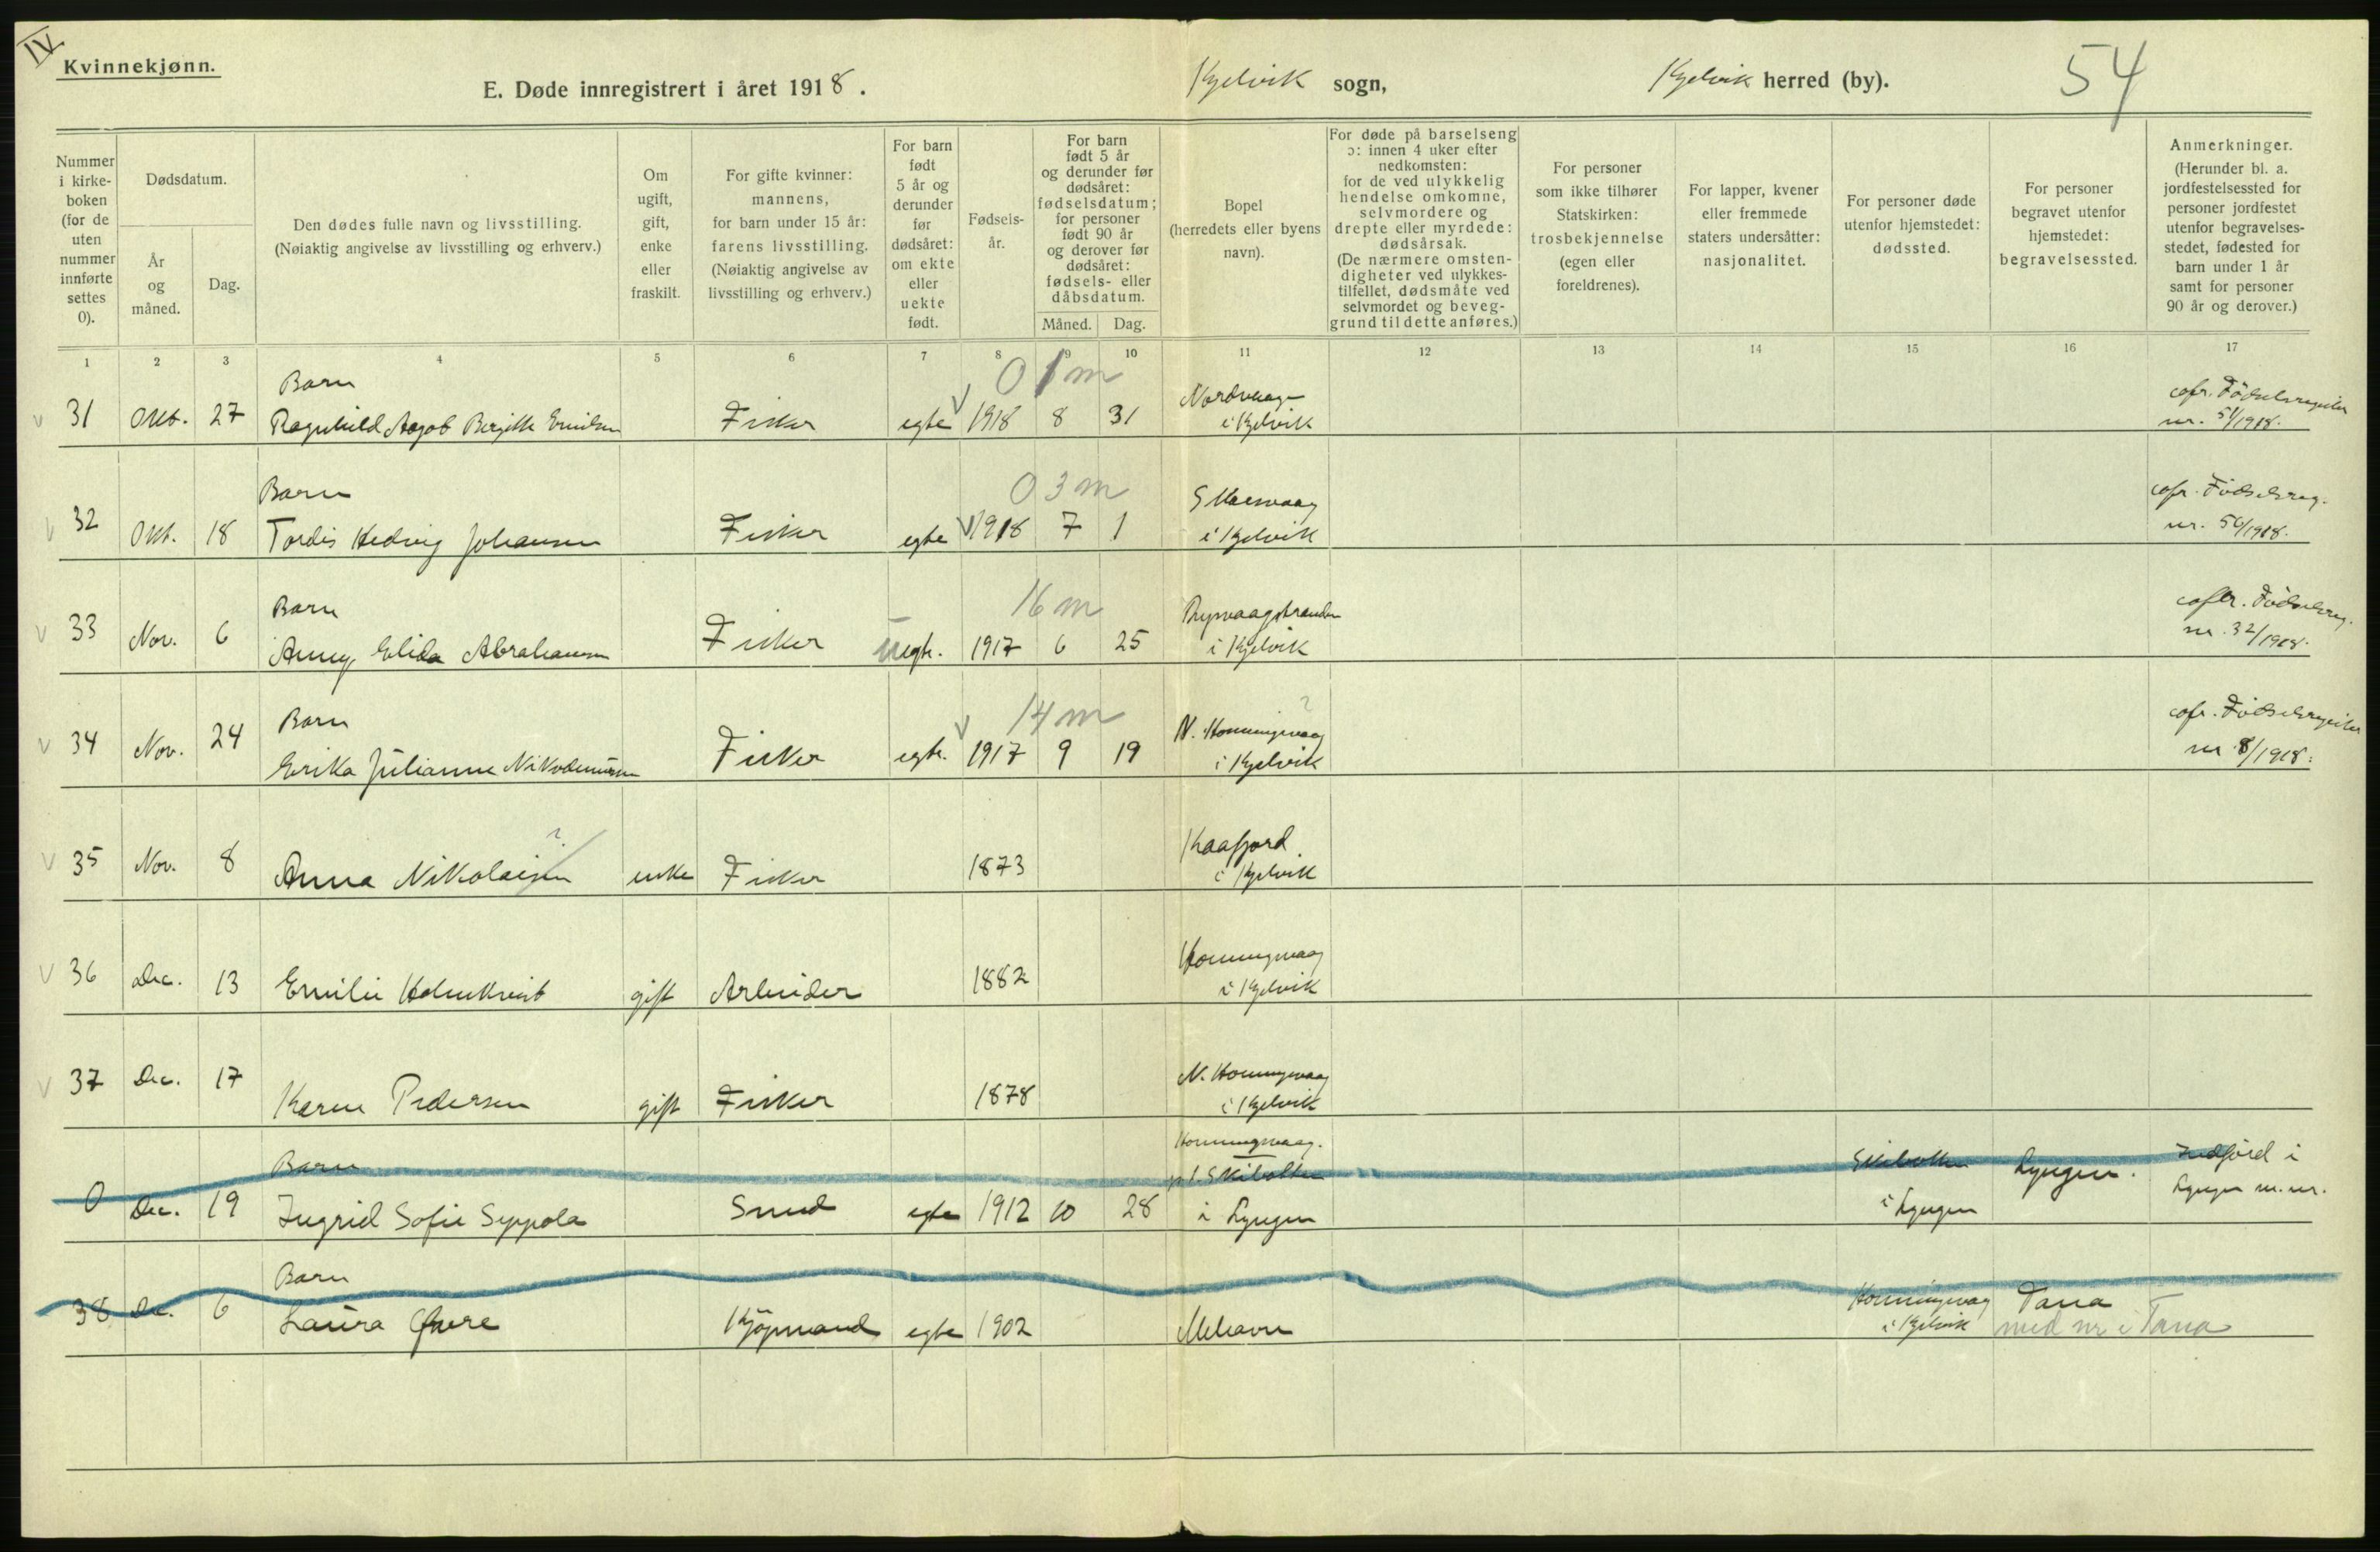 IV
Kvinnekjønn.
E. Døde innregistrert i året 1918.
Kjelvik sogn,
Kjelvik herred (by).
54
Nummer i kirke-boken (for de uten nummer innførte settes 0).
Dødsdatum.
År og måned.
Dag.
Den dødes fulle navn og livsstilling.
(Nøiaktig angivelse av livsstilling og erhverv.)
Om ugift, gift, enke eller fraskilt.
For gifte kvinner: mannens, for barn under 15 år: farens livsstilling. (Nøiaktig angivelse av livsstilling og erhverv.)
For barn født 5 år og derunder før dødsåret: om ekte eller uekte født.
Fødsels-år.
For barn født 5 år og derunder før dødsåret: fødselsdatum; for personer født 90 år og derover før dødsåret: fødsels- eller dåbsdatum.
Måned. Dag.
Bopel (herredets eller byens navn).
For døde på barselseng ɔ: innen 4 uker efter nedkomsten: for de ved ulykkelig hendelse omkomne, selvmordere og drepte eller myrdede: dødsårsak. (De nærmere omsten-digheter ved ulykkes-tilfellet, dødsmåte ved selvmordet og beveg-grund til dette anføres.)
For personer som ikke tilhører Statskirken: trosbekjennelse (egen eller foreldrenes).
For lapper, kvener eller fremmede staters undersåtter: nasjonalitet.
For personer døde utenfor hjemstedet: dødssted.
For personer begravet utenfor hjemstedet: begravelsessted.
Anmerkninger. (Herunder bl. a. jordfestelsessted for personer jordfestet utenfor begravelses-stedet, fødested for barn under 1 år samt for personer 90 år og derover.)
1 2 3 4 5 6 7 8 9 10 11 12 13 14 15 16 17
Barn 0 1 m Nordvaag
31 Okt. 27 Ragnhild Aagot Birgitte Emilsen Fisker egte 1918 8 31 i Kjelvik nr. 51/1918.
Barn 0 3 m Skarsvaag cofr. Fødselsreg.
32 Okt. 18 Tordis Hedvig Johansen Fisker egte 1918 7 1 i Kjelvik nr. 56/1918.
Barn 16 m cofr. Fødselsreg.
33 Nov. 6 Anny Elida Abrahamsen Fisker uegte. 1917 6 25 i Kjelvik nr. 32/1918.
Barn 14 m N. Honningsvaag ?
34 Nov. 24 Erika Julianne Nikodemusen Fisker egte. 1917 9 19 i Kjelvik nr 8/1918.
? Kaafjord
35 Nov. 8 Anna Nikolaisen enke Fisker 1873 i Kjelvik
Honningsvaag
36 Dec. 13 Emilie Holmkvist gift Arbeider 1882 i Kjelvik
N. Honningsvaag
37 Dec. 17 Karen Pedersen gift Fisker 1878 i Kjelvik
Honningsvaag.
Barn p.t. Skibotten Skibotten Lyngen. Indförd i
0 Dec. 19 Ingrid Sofie Seppola Smed egte 1912 10 28 i Lyngen i Lyngen Lyngen m. nr.
Barn Honningsvaag Tana
38 Dec. 6 Laura Øwre Kjøpmand egte 1902 Mehavn i Kjelvik med nr i Tana